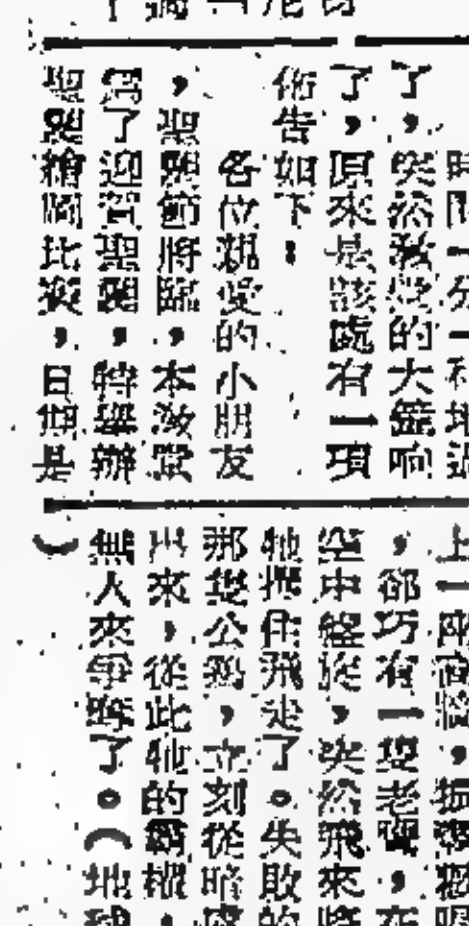 時間一分一秒地過
了，突然教堂的大鐘响
了，原來是該處有一項
佈告如下：
各位親愛的小朋友
，聖誕節將臨，本教堂
為了迎賀聖誕，特舉辦
聖誕繪圖比賽，日期是
上一座高牆，振翼歡唱
，卻巧有一隻老鷹，在
空中盤旋，突然飛來將
牠攫住飛走了。失敗的
那隻公鷄，立刻從暗處
出來，從此牠的霸權，
無人來爭奪了。（地球
）